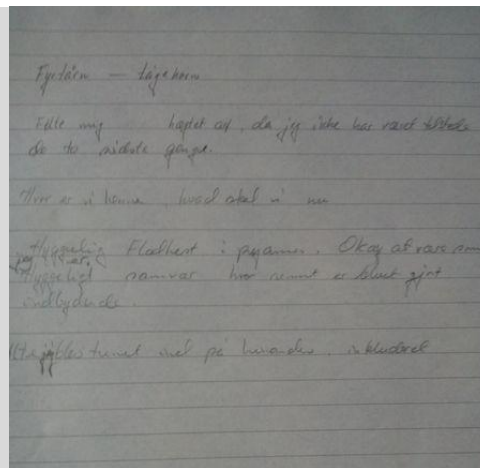 Fyrtårn — tågehorn
Følte mig hægtet af, da jeg ikke har været tilstede
de to sidste gange.
Hvor er vi henne, hvad skal vi nu
Hyggelig Flodhest i pyjamas. Okay at være som
jeg er.
Hyggeligt samvær hvor rummet er blevet gjort
indbydende.
stemt ind på hinanden, inkluderet